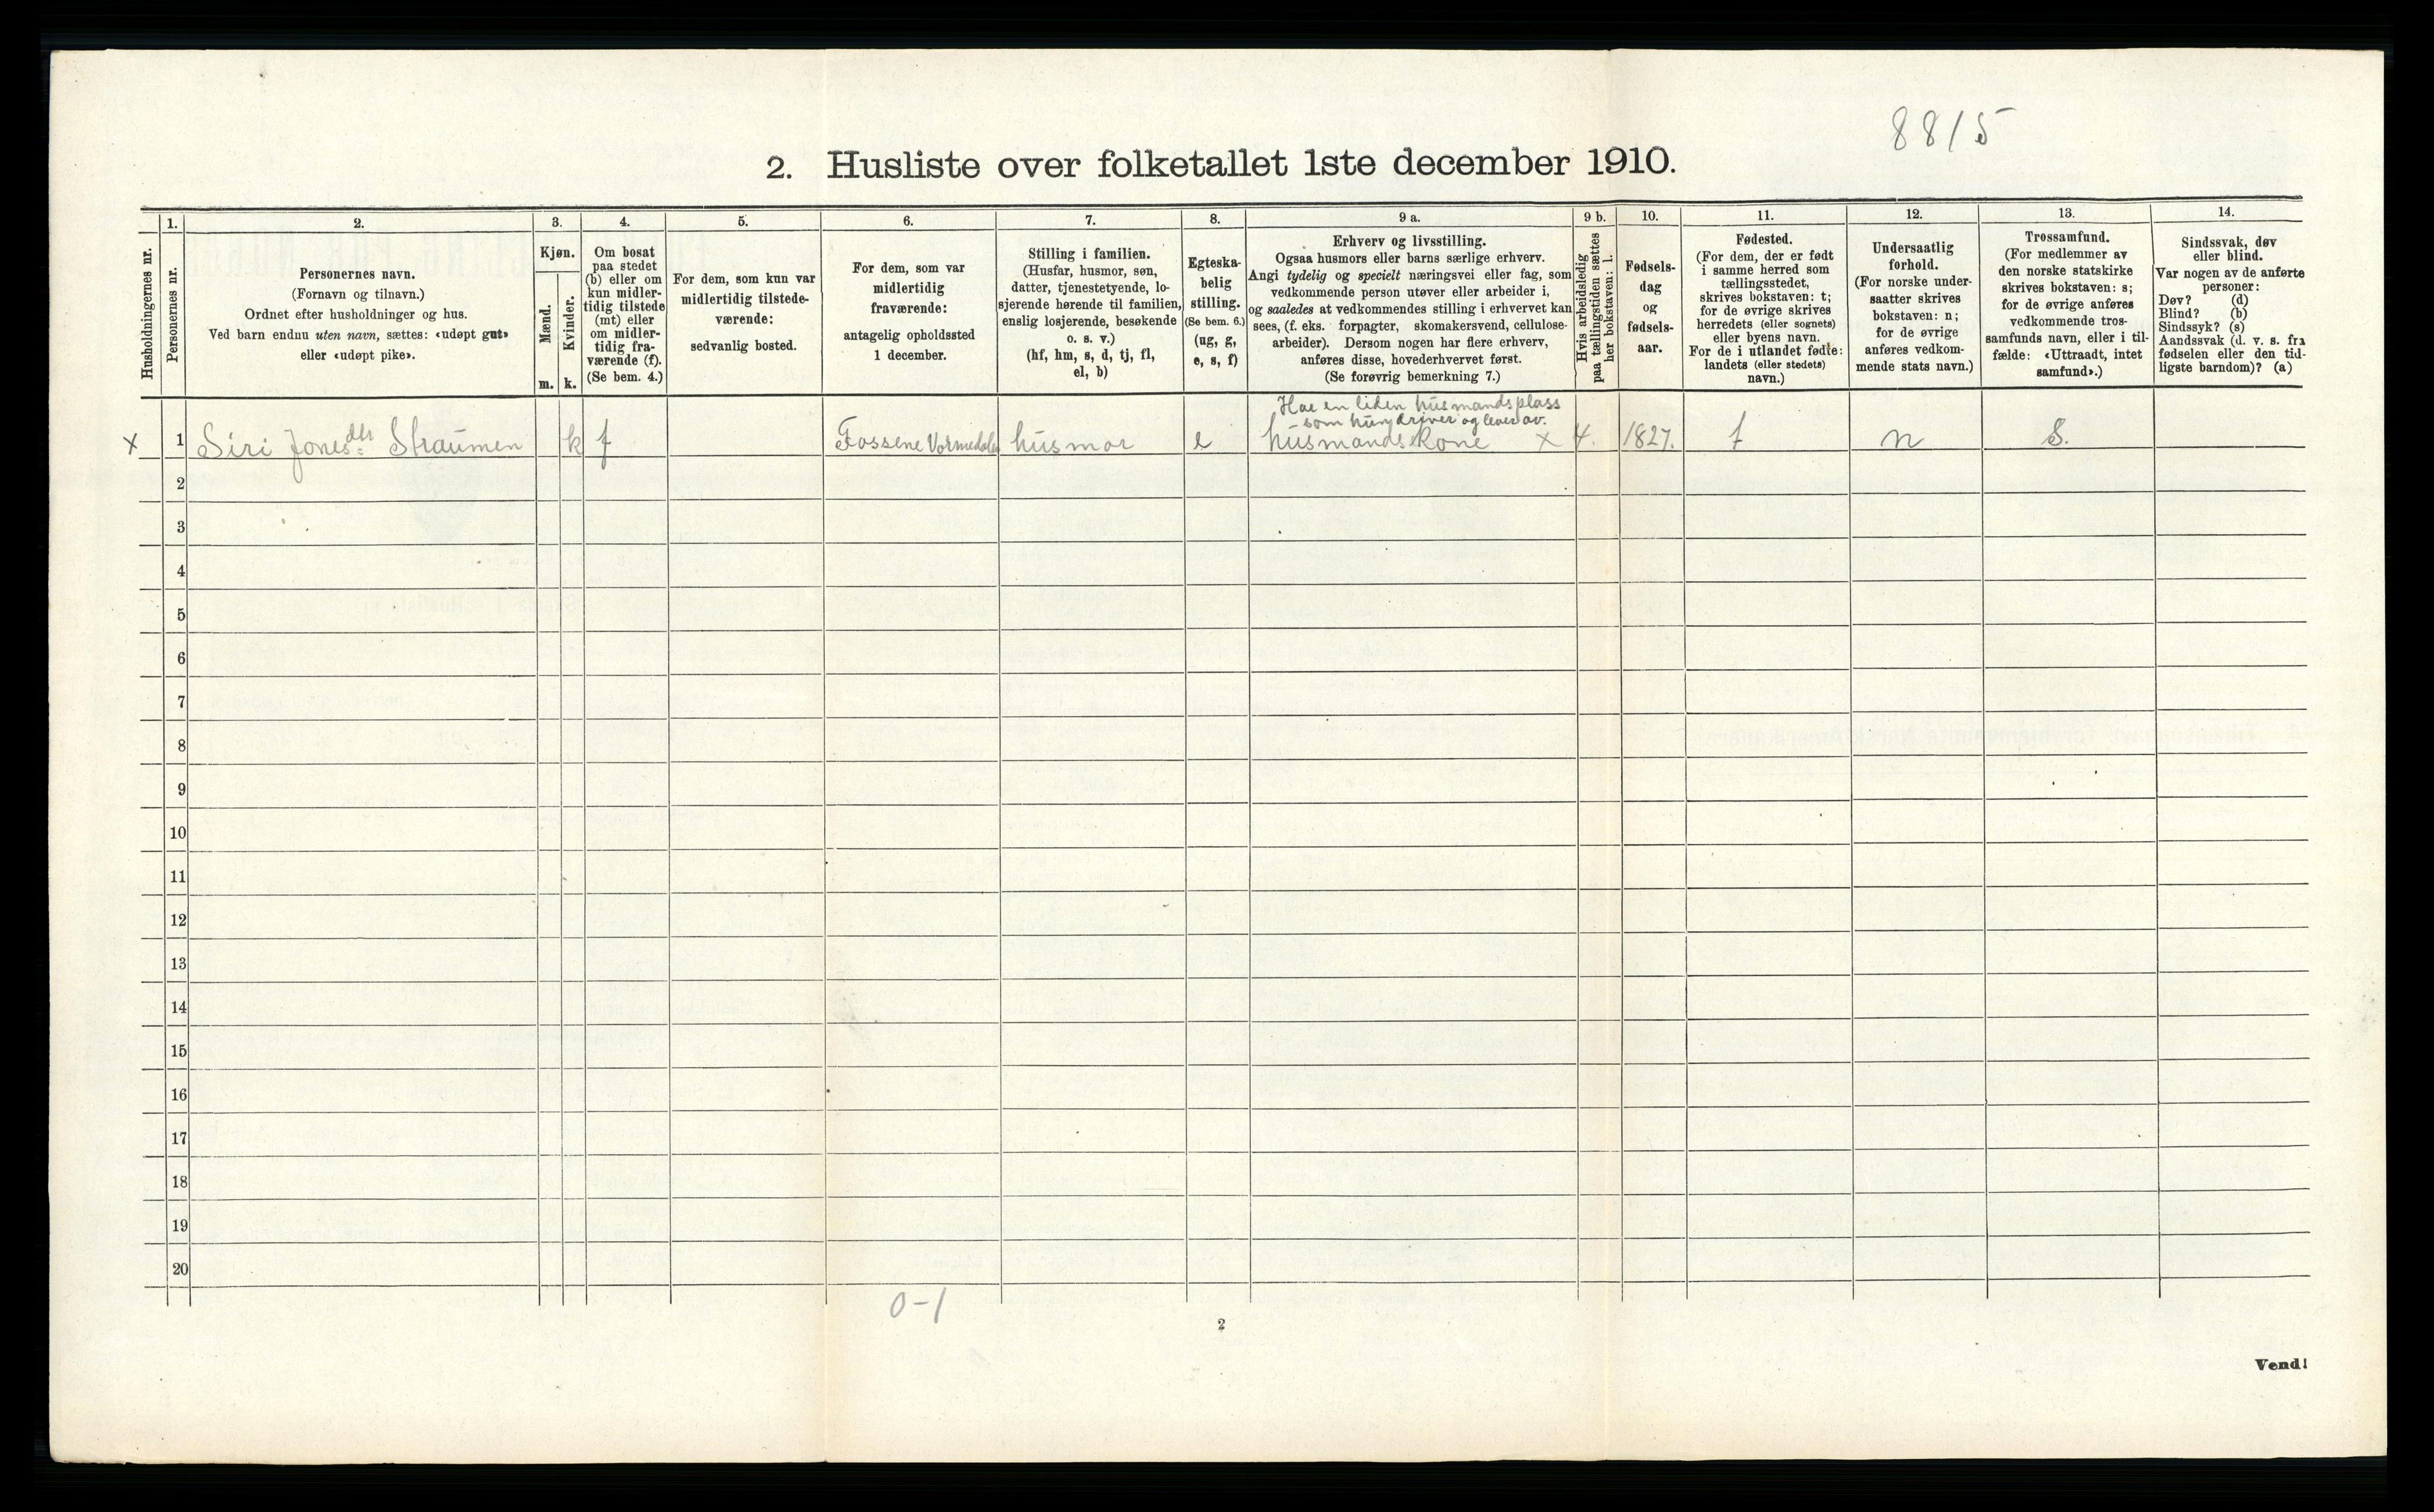 88/5
2. Husliste over folketallet 1ste december 1910.
Husholdningernes nr.
1.
Personernes nr.
2.
Personernes navn.
(Fornavn og tilnavn.)
Ordnet efter husholdninger og hus.
Ved barn endnu uten navn, sættes: «udøpt gut»
eller «udøpt pike».
3.
Kjøn.
Mænd.
m.
Kvinder.
k.
4.
Om bosat
paa stedet
(b) eller om
kun midler-
tidig tilstede
(mt) eller
om midler-
tidig fra-
værende (f).
(Se bem. 4.)
5.
For dem, som kun var
midlertidig tilstede-
værende:
sedvanlig bosted.
6.
For dem, som var
midlertidig
fraværende:
antagelig opholdssted
1 december.
7.
Stilling i familien.
(Husfar, husmor, søn,
datter, tjenestetyende, lo-
sjerende hørende til familien,
enslig losjerende, besøkende
o. s. v.)
(hf, hm, s, d, tj, fl,
el, b)
8.
Egteska-
belig
stilling.
(Se bem. 6.)
(ug, g,
e, s, f)
9 a.
Erhverv og livsstilling.
Ogsaa husmors eller barns særlige erhverv.
Angi tydelig og specielt næringsvei eller fag, som
vedkommende person utøver eller arbeider i,
og saaledes at vedkommendes stilling i erhvervet kan
sees, (f. eks. forpagter, skomakersvend, cellulose-
arbeider). Dersom nogen har flere erhverv,
anføres disse, hovederhvervet først.
(Se forøvrig bemerkning 7.)
9 b.
Hvis arbeidsledig
paa tællingstiden sættes
her bokstaven: l.
10.
Fødsels-
dag
og
fødsels-
aar.
11.
Fødested.
(For dem, der er født
i samme herred som
tællingsstedet,
skrives bokstaven: t;
for de øvrige skrives
herredets (eller sognets)
eller byens navn.
For de i utlandet fødte:
landets (eller stedets)
navn.)
12.
Undersaatlig
forhold.
(For norske under-
saatter skrives
bokstaven: n;
for de øvrige
anføres vedkom-
mende stats navn.)
13.
Trossamfund.
(For medlemmer av
den norske statskirke
skrives bokstaven: s;
for de øvrige anføres
vedkommende tros-
samfunds navn, eller i til-
fælde: «Uttraadt, intet
samfund».)
14.
Sindssvak, døv
eller blind.
Var nogen av de anførte
personer:
Døv? (d)
Blind? (b)
Sindssyk? (s)
Aandssvak (d. v. s. fra
fødselen eller den tid-
ligste barndom)? (a)
Har en liden husmandsplass
som hun driver og lever av.
x 1 Siri Jonesdtr Straumen k f Fossene Vormedalen husmor e husmandskone x 4. 1827. t n S.
2
3
4
5
6
7
8
9
10
11
12
13
14
15
16
17
18
19
20
0-1
2
Vend!